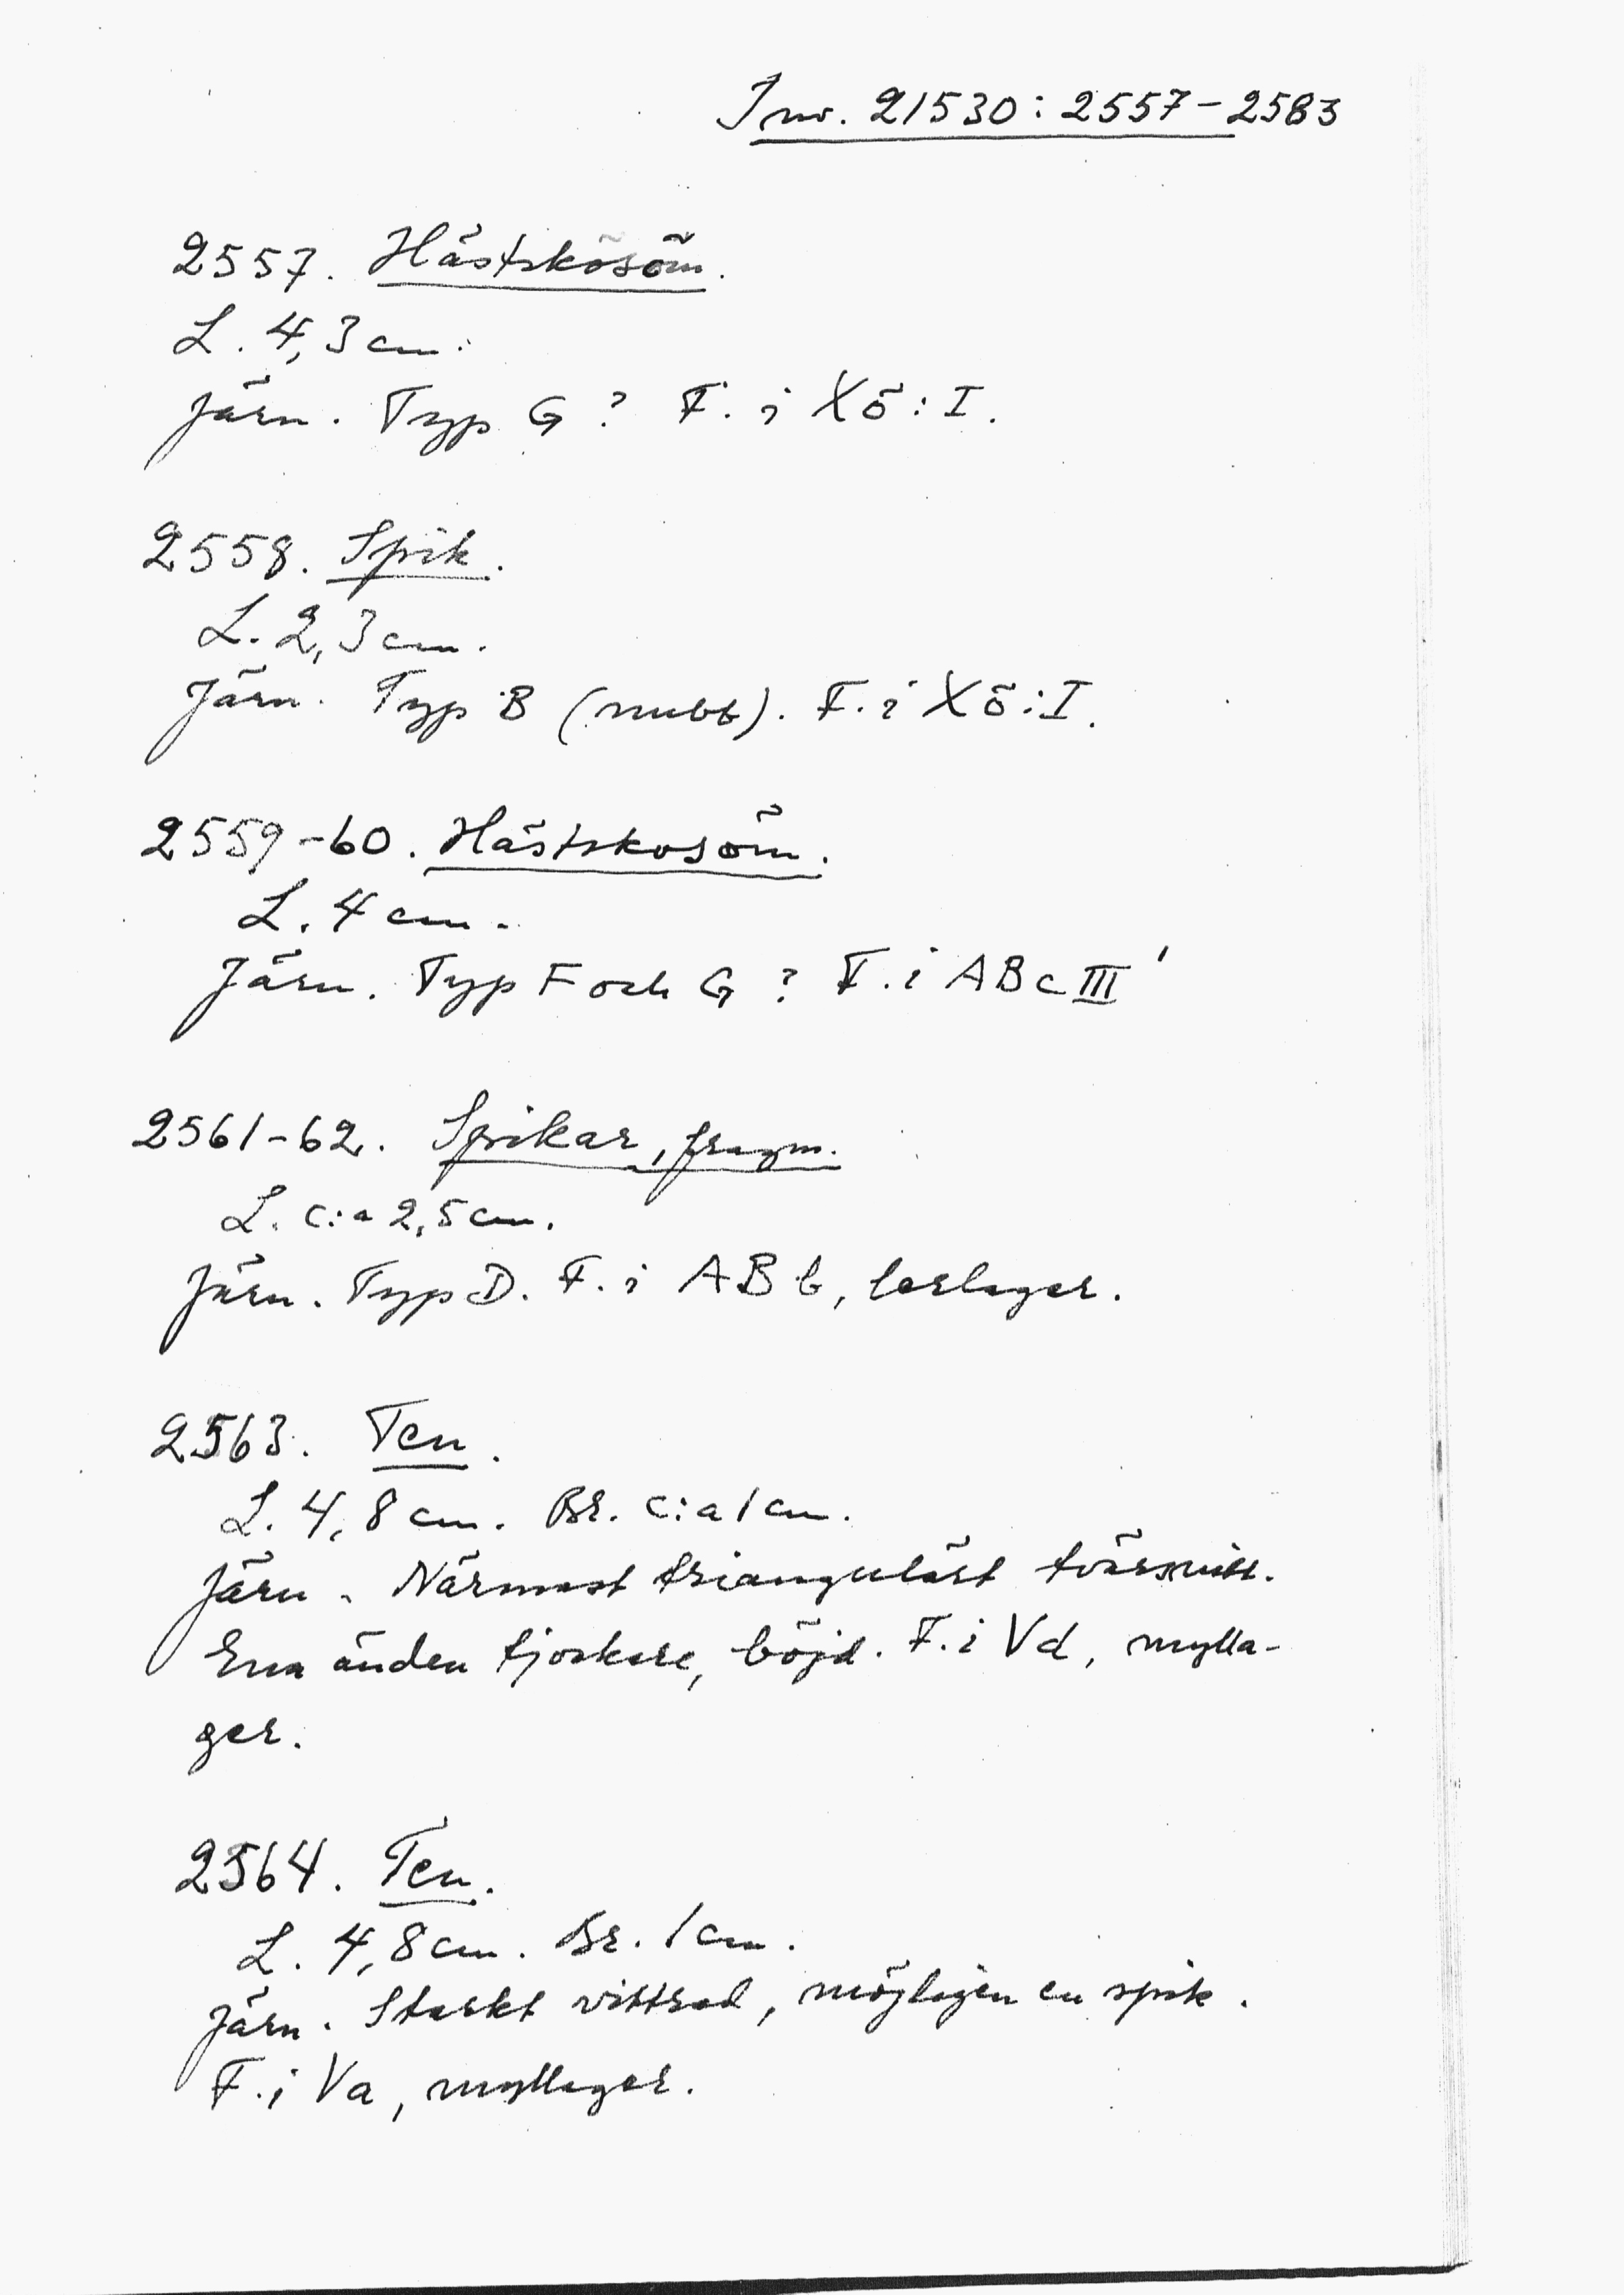 Inv. 21530:2557-2583
2557. Hästskosöm.
L. 4,3 cm.
Järn. Typ G? F. i Xö:I.
2558. Spik.
L. 2,3 cm.
Järn. Typ B (nubb). F. i Xö:I.
2559-60. Hästskosöm.
L. 4 cm.
Järn. Typ F och G? F. i ABc III'
2561-62. Spikar, fragm.
L. c:a 2,5 cm.
Järn. Typ D. F. i ABb, lerlager.
2563. Ten.
L. 4,8 cm. Br. c:a 1 cm.
Järn. Närmast triangulärt tvärsnitt.
Ena änden tjockare, böjd. F. i Vd, mylla-
ger.
2564. Ten.
L. 4,8 cm. Br. 1 cm.
Järn. Starkt vittrad, möjligen en spik.
F. i Va, myllager.